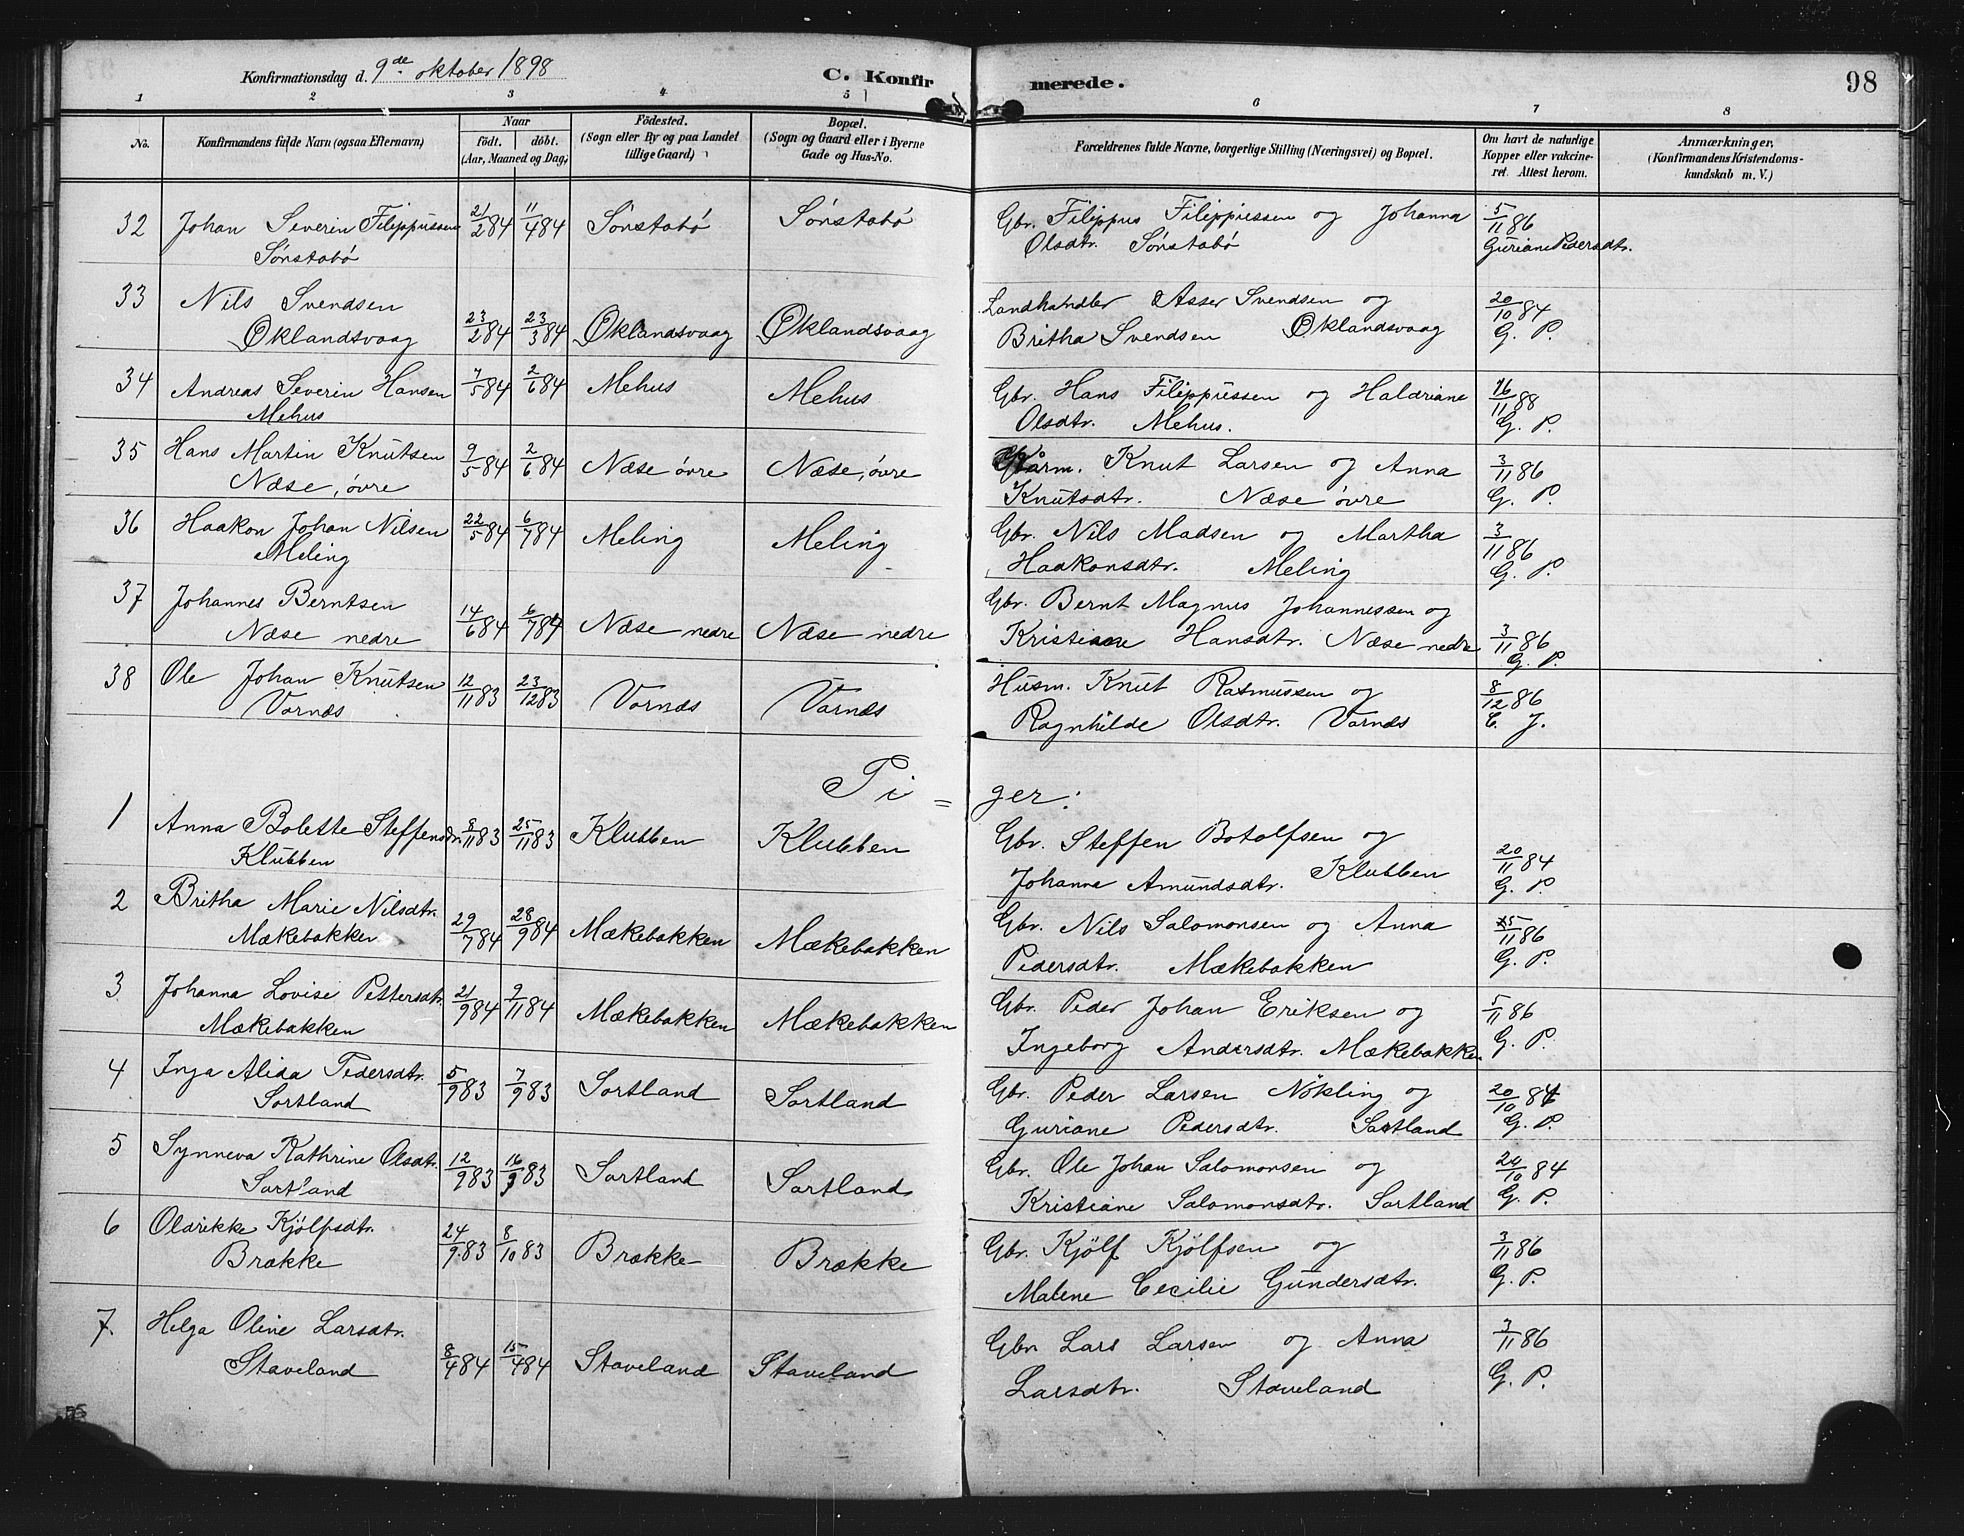 Konfirmationsdag d. 9de oktober 1898
C. Konfirmerede.
98
1 2 3 4 5 6 7 8
No.
Konfirmandens fulde Navn (ogsaa Efternavn)
Naar
født. døbt.
(Aar, Maaned og Dag.)
Fødested.
(Sogn eller By og paa Landet
tillige Gaard)
Bopæl.
(Sogn og Gaard eller i Byerne
Gade og Hus-No.
Forældrenes fulde Navne, borgerlige Stilling (Næringsvei) og Bopæl.
Om havt de naturlige
Kopper eller vakcine-
ret. Attest herom.
Anmærkninger.
(Konfirmandens Kristendoms-
kundskab m. V.)
32 Johan Severin Filippussen 21/2 84 11/4 84 Sønstabø Sønstabø Gbr. Filippus Filippussen og Johanna 5/11 86
Sønstabø Olsdtr. Sønstabø Guriane Pedersdtr.
33 Nils Svendsen Landhandler Asser Svendsen og 20/10 84
Øklandsvaag 23/2 84 23/3 84 Øklandsvaag Øklandsvaag Britha Svendsen Øklandsvaag G. P.
34 Andreas Severin Hansen 7/5 84 2/6 84 Mehus Mehus Gbr. Hans Filippussen og Haldriane 16/11 88
Mehus Olsdtr. Mehus. G. P.
35 Hans Martin Knutsen 9/5 84 2/6 84 Næse øvre Næse, øvre Knut Larsen og Anna 3/11 86
Næse, øvre Knutsdtr. Næse øvre G. P.
36 Haakon Johan Nilsen 22/5 84 6/7 84 Meling Meling Gbr. Nils Madsen og Martha 3/11 86
Meling Haakonsdtr. Meling G. P.
37 Johannes Berntsen Gbr. Bernt Magnus Johannessen og
Næse nedre 14/6 84 6/7 84 Næse nedre Næse nedre Kristiane Hansdtr. Næse nedre 3/11 86
G. P.
38 Ole Johan Knutsen 12/11 83 23/12 83 Vornæs Vornæs Husm. Knut Rasmussen og 8/12 86
Vornæs Ragnhilde Olsdtr. Vornæs C. J.
Pi=ger:
1 Anna Bolette Steffensdr. 8/11 83 25/11 83 Klubben Klubben Gbr. Steffen Botolfsen og 20/11 84
Klubben Johanna Amundsdtr. Klubben G. P.
2 Britha Marie Nilsdtr. 29/7 84 28/9 84 Mækebakken Mækebakken Gbr. Nils Salomonsen og Anna /11 86
Mækebakken Pedersdtr. Mækebakken G. P.
3 Johanna Lovise Pettersdtr. 21/9 84 9/11 84 Mækebakken Mækebakken Gbr. Peder Johan Eriksen og 5/11 86
Mækebakken Ingeborg Andersdtr. Mækebakken G. P.
4 Inga Alida Pedersdtr. 5/9 83 7/9 83 Sortland Sortland Gbr. Peder Larsen Nøkling og 20/10 84
Sortland Guriane Pedersdtr. Sortland G. P.
5 Synneva Kathrine Olsdtr. 12/9 83 16/9 83 Sortland Sortland Gbr. Ole Johan Salomonsen og /10 84
Sortland Kristiane Salomonsdtr. Sortland G. P.
6 Oldrikke Kjølfsdtr. 24/9 83 8/10 83 Brække Brække Gbr. Kjølf Kjølfsen og 3/11 86
Brække Malene Cecilie Gundersdtr. G. P.
7. Helga Oline Larsdtr. Gbr. Lars Larsen og Anna 3/11 86
Staveland 8/4 84 15/4 84 Staveland Staveland Larsdtr. Staveland G. P.